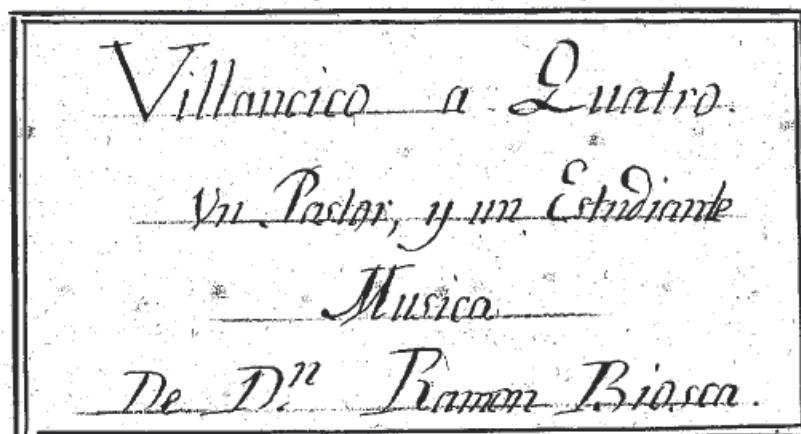 Villancico a Quatro.
Vn Pastor, y un Estudiante
Musica
De D.ⁿ Ramon Biosca.